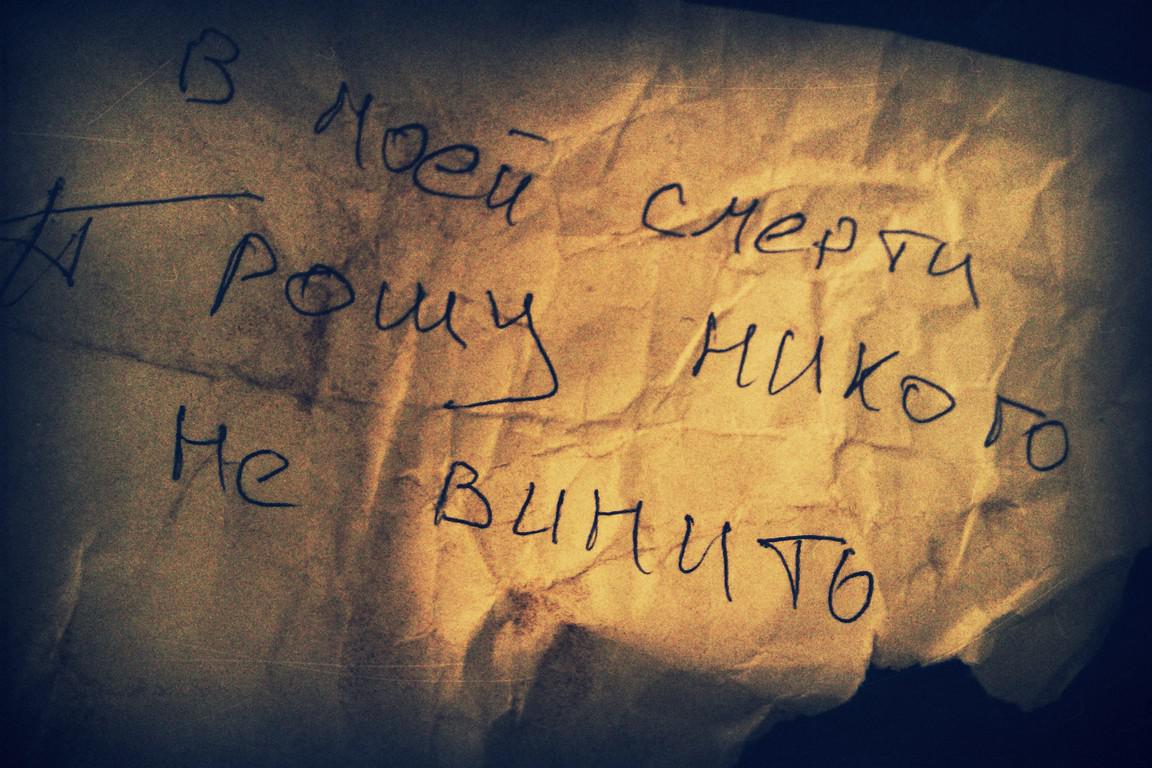 В моей смерти
Прошу никого
не винить